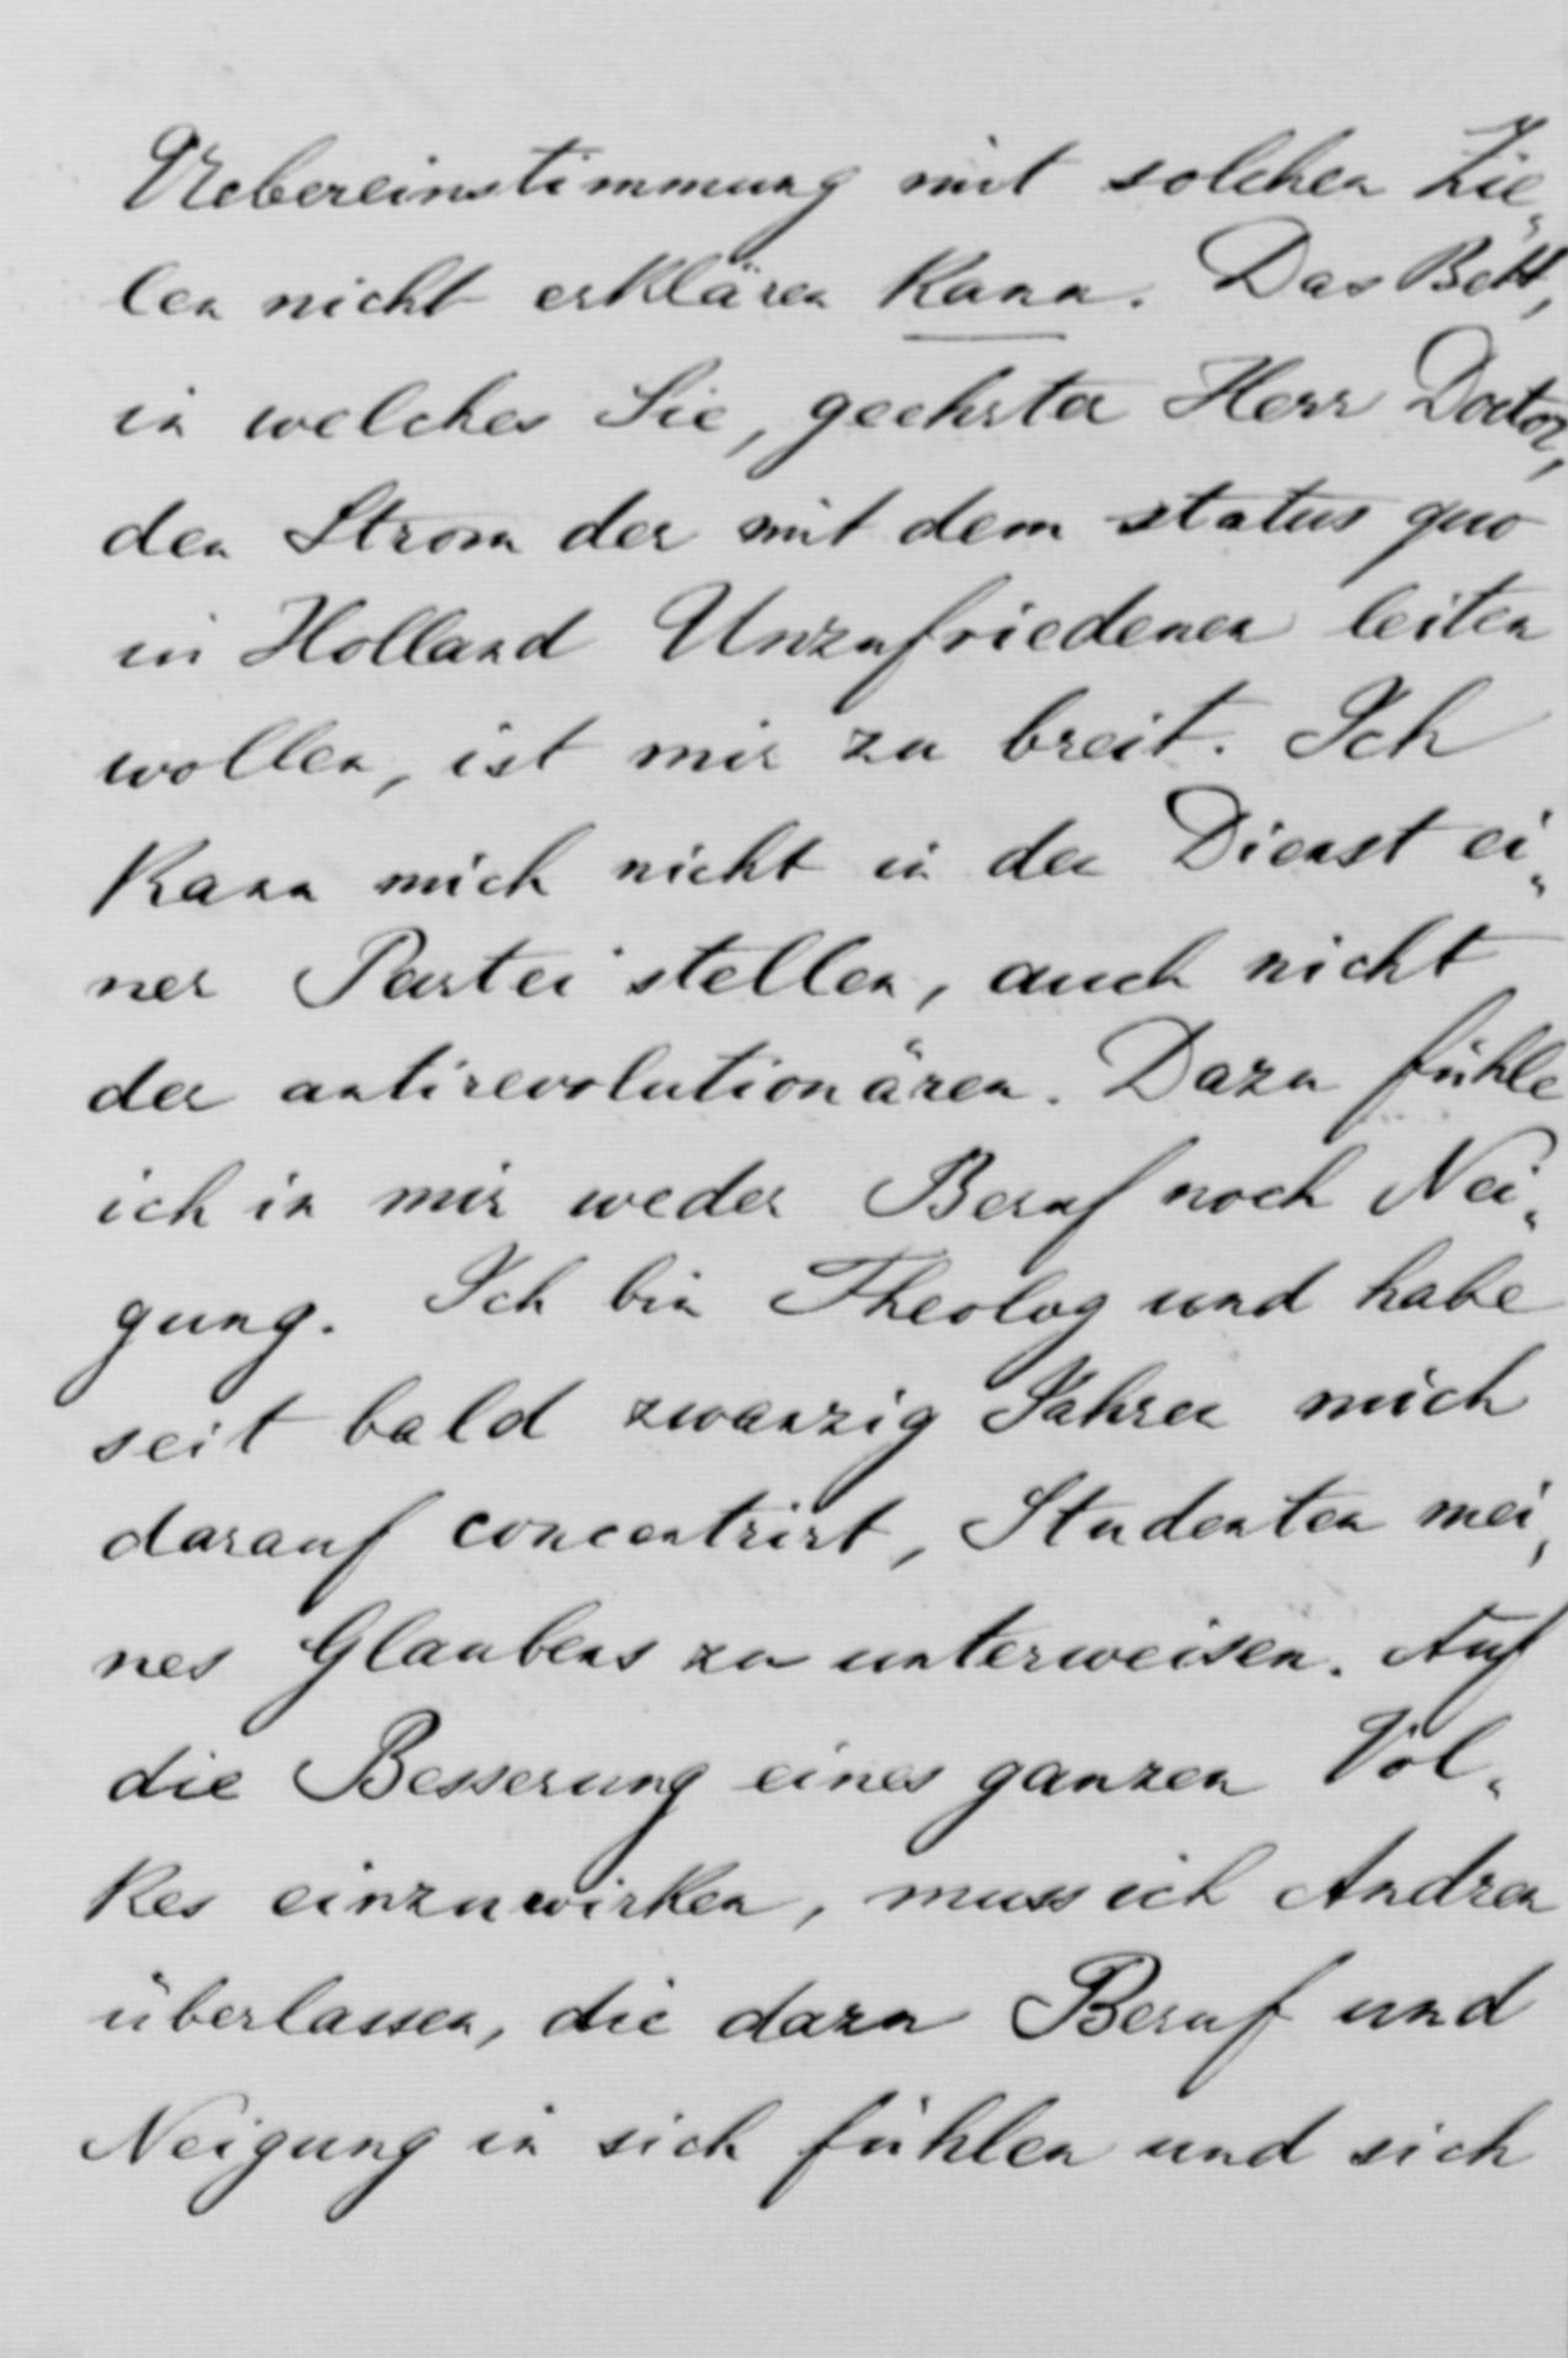 Uebereinstimmung mit solchen Zie„
len nicht erklären kann. Das Bett,
in welches Sie, geehrter Herr Doctor,
den Strom der mit dem status quo
in Holland Unzufriedenen leiten
wollen, ist mir zu breit. Ich
kann mich nicht in den Dienst ei„
ner Partei stellen, auch nicht
der antirevolutionären. Dazu fühle
ich in mir weder Beruf noch Nei„
gung. Ich bin Theolog und habe
seit bald zwanzig Jahren mich
darauf concentrirt, Studenten mei„
nes Glaubens zu unterweisen. Auf
die Besserung eines ganzen Vol„
kes einzuwirken, muss ich Andren
überlassen, die dazu Beruf und
Neigung in sich fühlen und sich